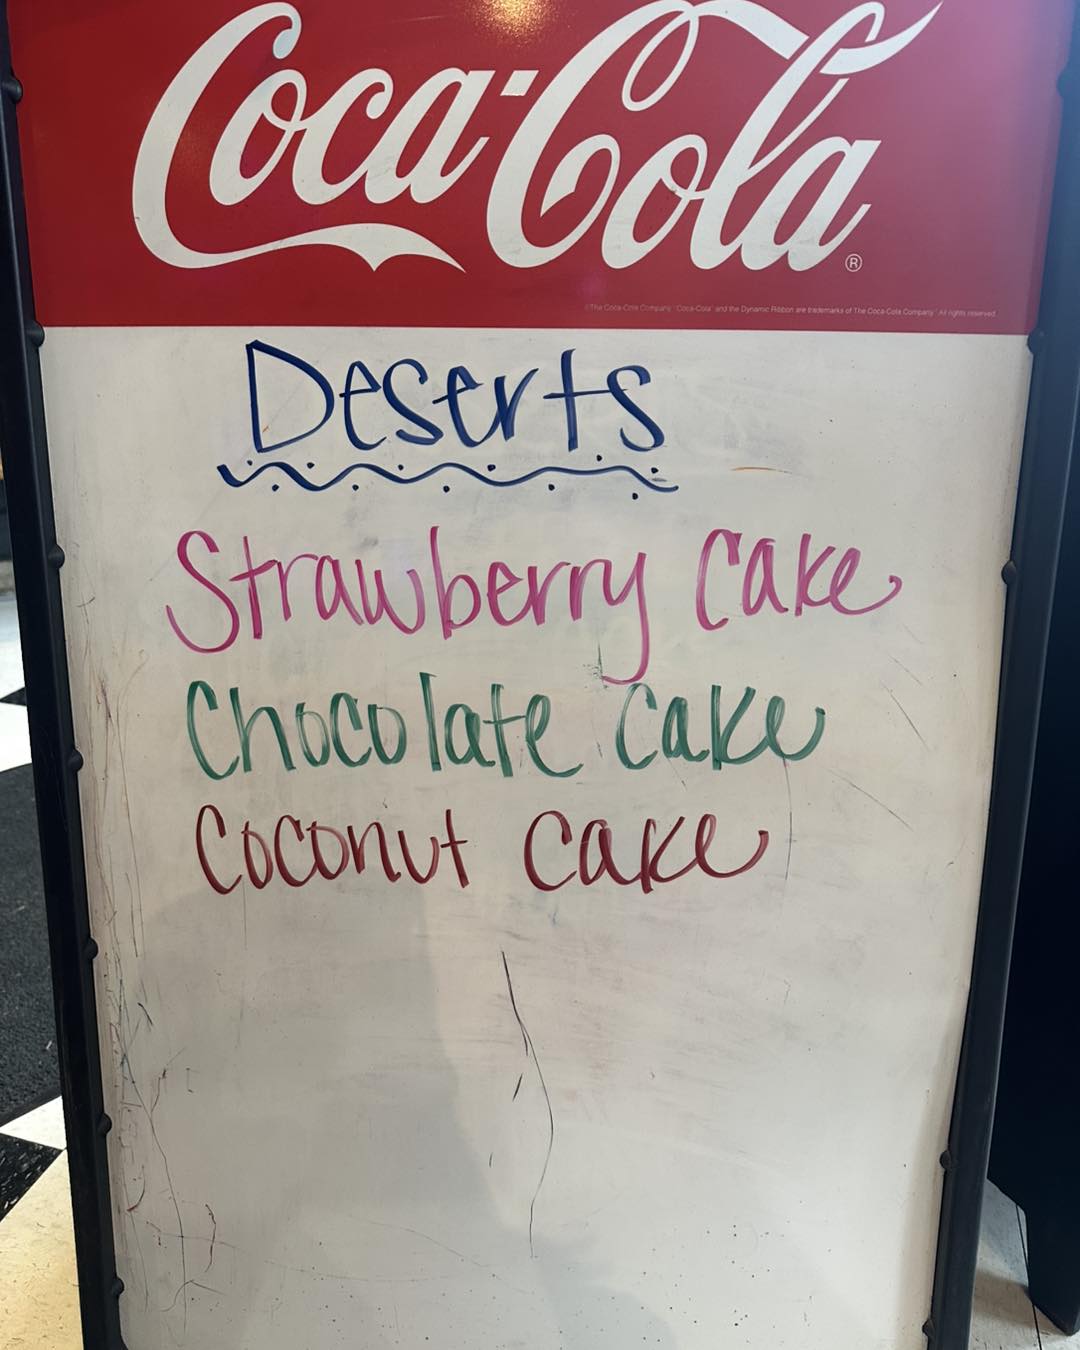 Coca-Cola
®
©The Coca-Cola Company. "Coca-Cola" and the Dynamic Ribbon are trademarks of The Coca-Cola Company. All rights reserved.
Deserts
Strawberry Cake
Chocolate Cake
Coconut Cake